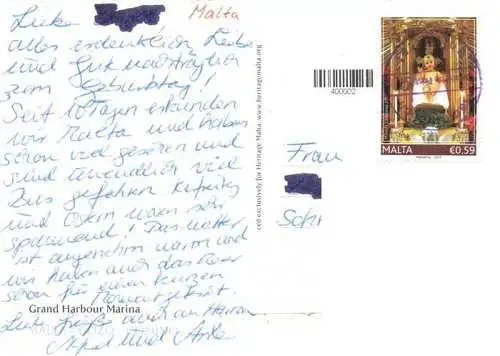 Liebe
Malta
alles erdenklich Liebe
und Gute nachträglich
zum Geburtstag!
Seit 10 Tagen erkunden
wir Malta und haben
schon viel gesehen und
sind unendlich viel
Bus gefahren
und Ostern waren sehr
spannend! Das Wetter
ist angenehm warm und
wir haben auch das
schon für einen kurzen
Grand Harbour Marina
Liebe Grüße auch an
und
400002
ced exclusively for Heritage Malta. www.heritagemalta.org
Frau
Schr
MALTA €0.59